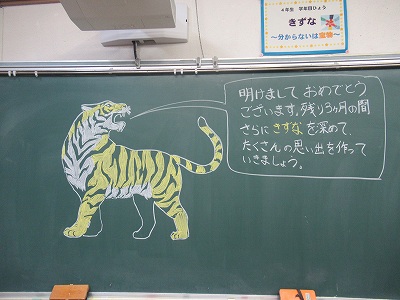 4年生 学年目ひょう
きずな
～分からないは宝物～
明けまして おめでとう
ございます。残り3ヶ月の間
さらに きずな を深めて、
たくさんの思い出を作って
いきましょう。